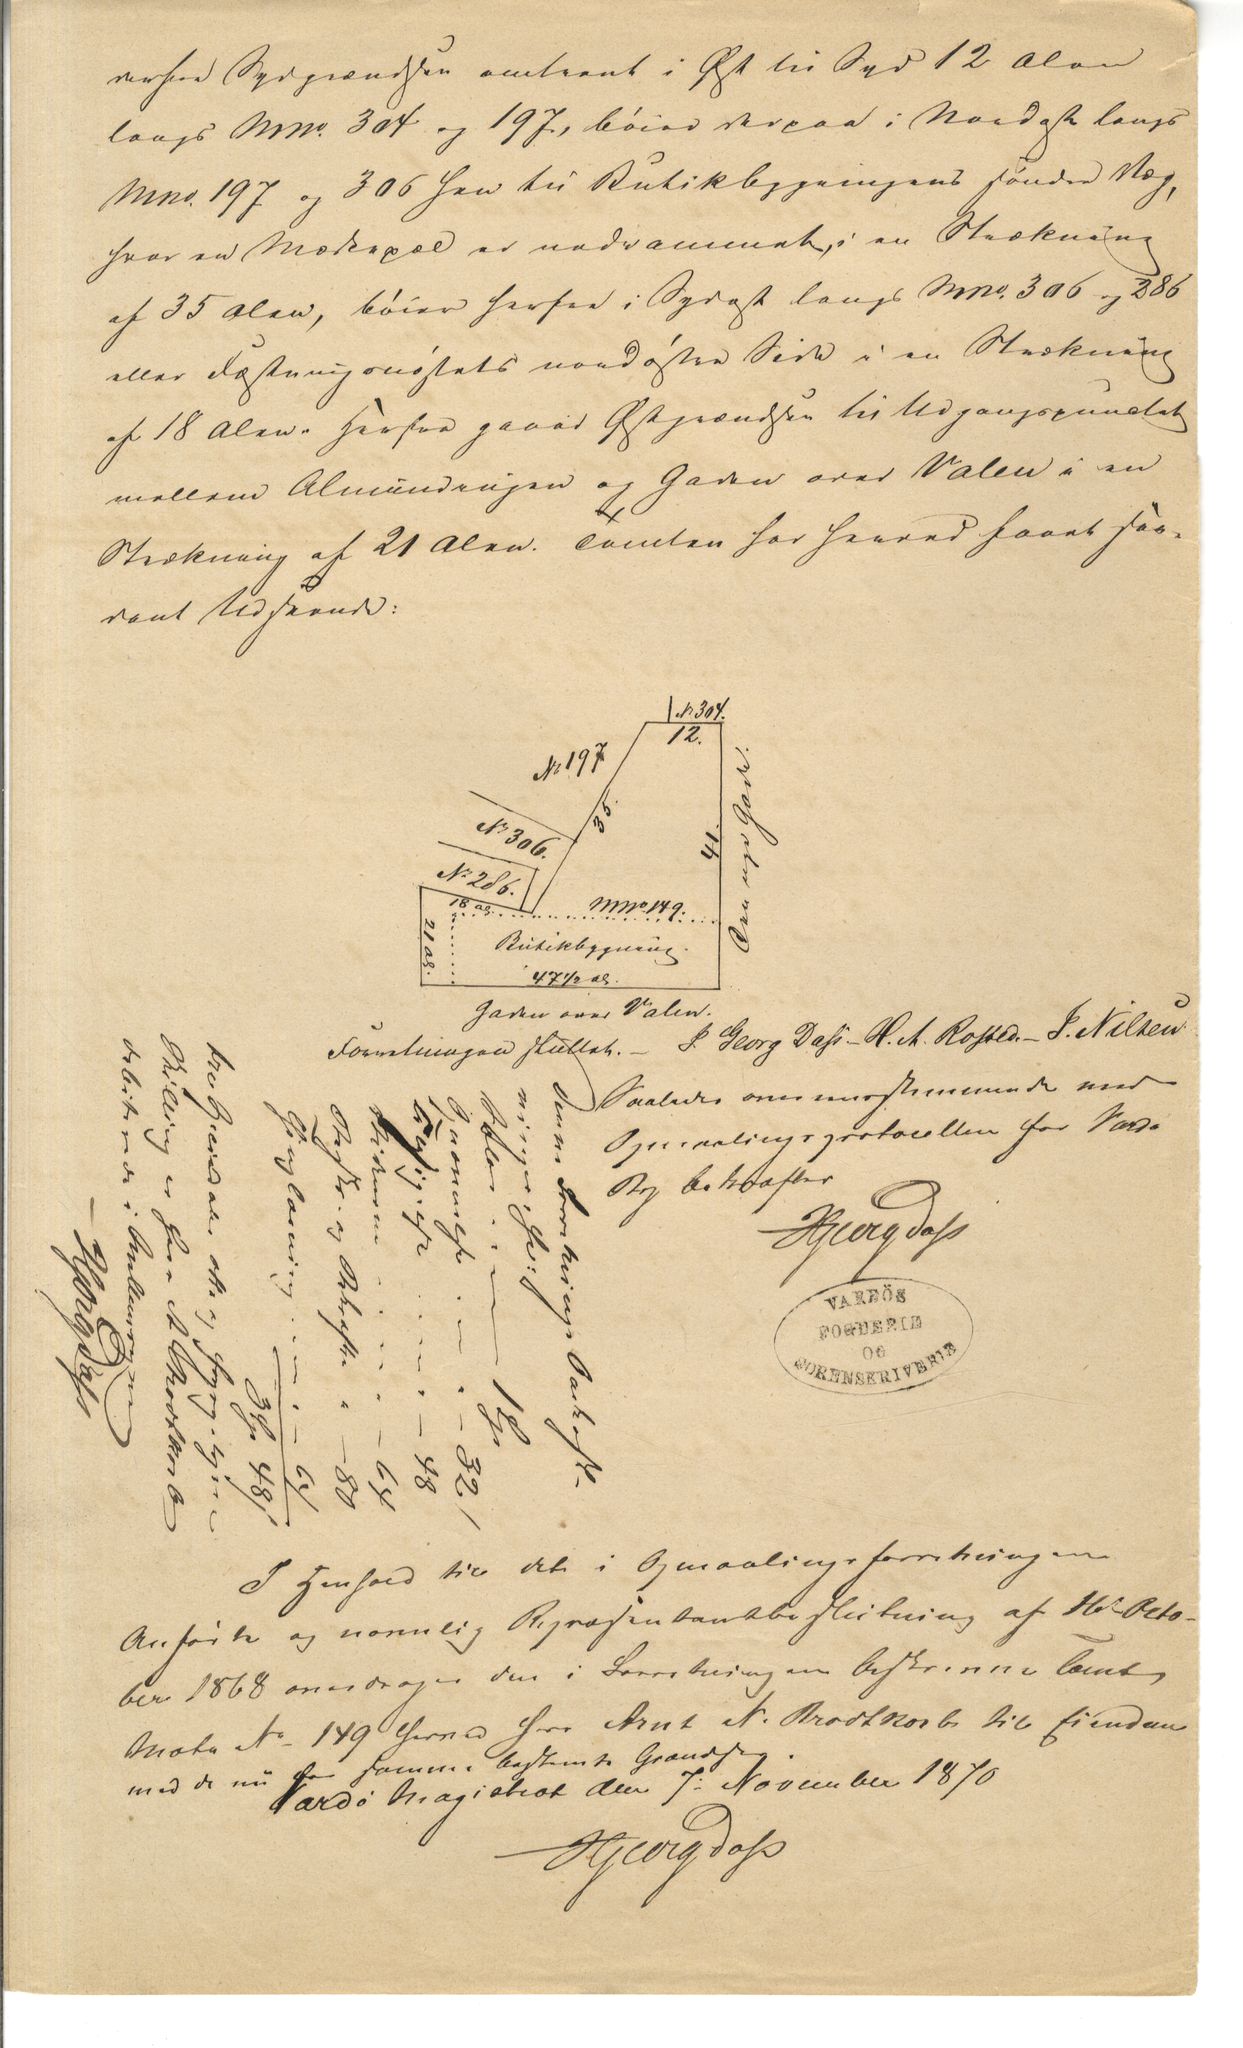 derfra Sydgrændsen omtrent i Øst til Syd 12 Alen
langs Mno. 304 og 197, böier derpaa i Nordost langs
Mno. 197 og 306 hen til Butikbygningens söndre Væg,
hvor en Mærkepæl er nedrammet, i en Strækning
af 35 Alen, böier herfra i Sydost langs Mno. 306 og 286
eller Fæstningsnöstets nordöstre Side i en Strækning
af 18 Alen. Herfra gaaer Østgrændsen til Udgangspunctet
mellem Almindingen og Gaden over Valen i en
Strækning af 21 Alen. Tomten har herved faaet saa-
dant Udseende:
N. 304.
12.
No 197
35.
No 306.
41.
No 286.
18 al.
Mno. 149.
21 al.
Butikbygning.
47½ al.
Gaden over Valen.
Forretningen sluttet. – J. Georg Dass – H. A. Rosted. – J. Nilsen
Saaledes overensstemmende med
Opmaalingsprotocollen for Vardø
By bekræfter
HGeorgDass
VARDÖS
FOGDERIE
OG
SORENSKRIVERIE
Denne Forretnings Bekost-
ninger ere:
1 Sp
32
48
64
80
64
3 Sp 48
HGeorgDass
I Henhold til det i Opmaalingsforretningen
Anförte og navnlig Repræsentantbeslutning af 16de Octo-
ber 1868 overdrages den i Forretningen beskrevne Tomt,
Matr No 149 herved Hr. Arnt N. Brodtkorb til Eiendom
med de nu for samme bestemte Grændser.
Vardö Magistrat den 7: November 1870
HGeorgDass